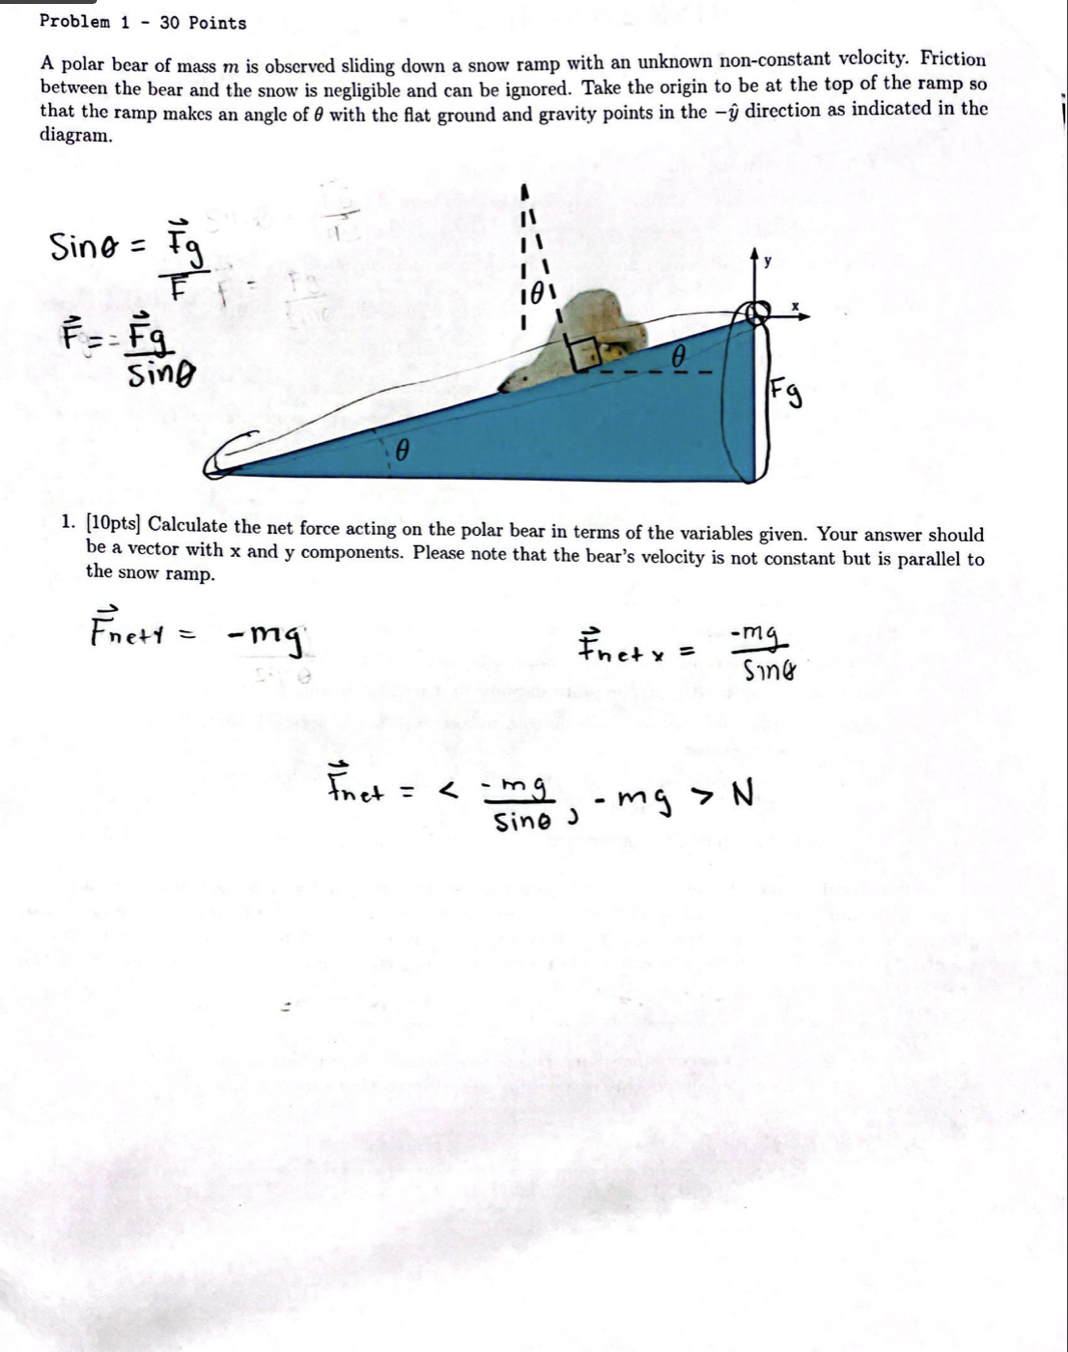 Problem 1 - 30 Points
A polar bear of mass m is observed sliding down a snow ramp with an unknown non-constant velocity. Friction
between the bear and the snow is negligible and can be ignored. Take the origin to be at the top of the ramp so
that the ramp makes an angle of θ with the flat ground and gravity points in the −ŷ direction as indicated in the
diagram.
Sinθ = F⃗g / F
F⃗ = F⃗g / Sinθ
θ
y
x
θ
Fg
θ
1. [10pts] Calculate the net force acting on the polar bear in terms of the variables given. Your answer should
be a vector with x and y components. Please note that the bear's velocity is not constant but is parallel to
the snow ramp.
F⃗net y = -mg
F⃗net x = -mg / Sinθ
F⃗net = < -mg / Sinθ , -mg > N